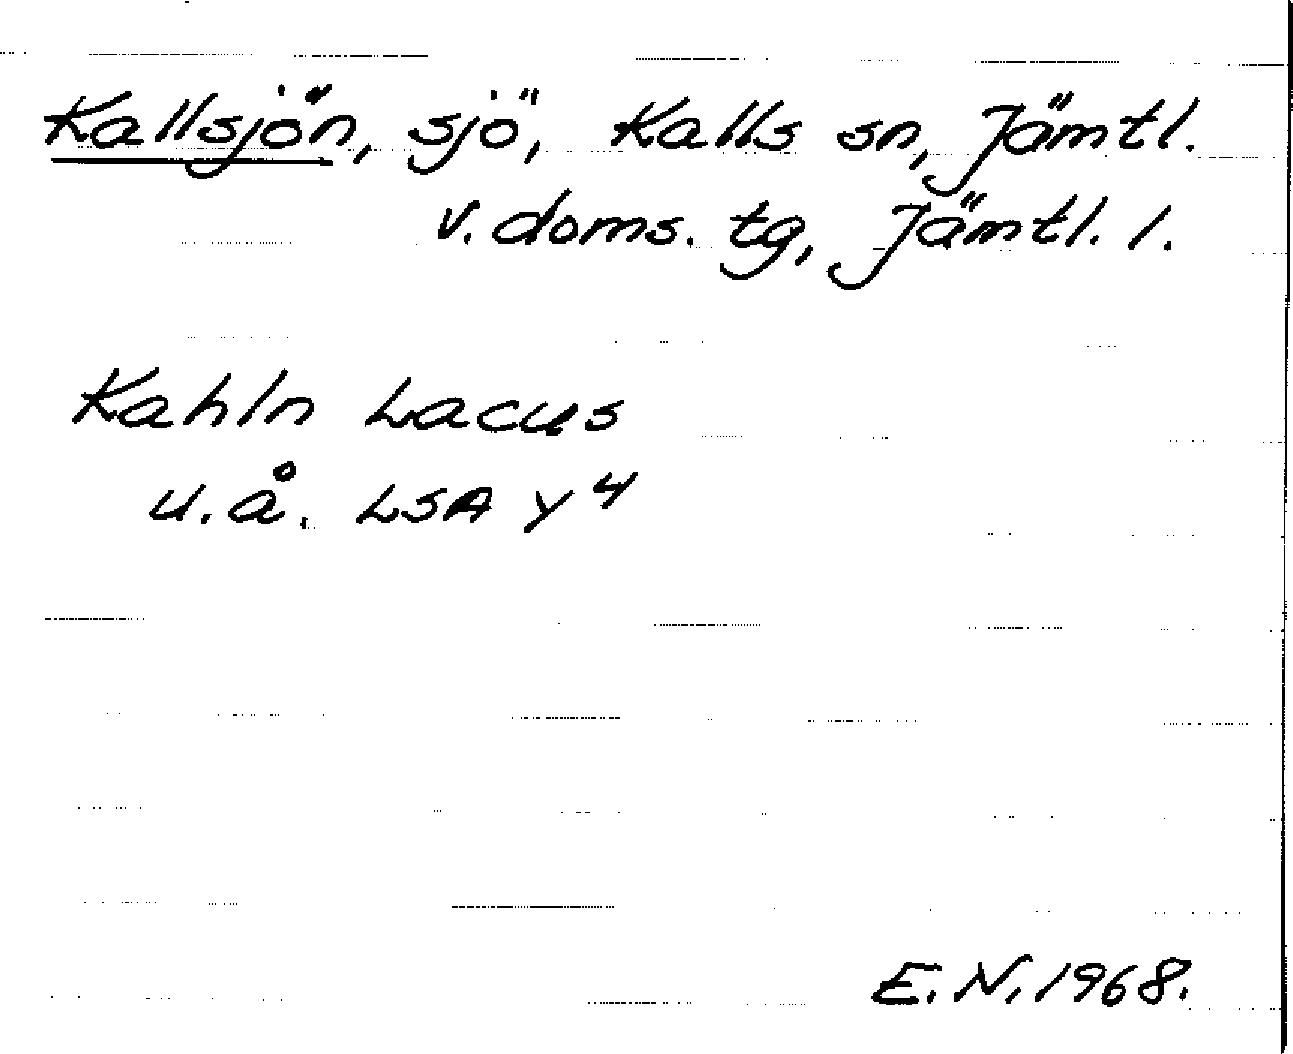 Kallsjön, sjö, Kalls sn, Jämtl.
v. doms. tg, Jämtl. l.
Kahln Lacus
u.å. LSA y 4
E.N. 1968.